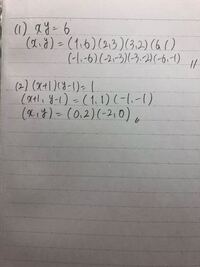 (1) xy = 6
(x,y) = (1,6)(2,3)(3,2)(6,1)
(-1,-6)(-2,-3)(-3,-2)(-6,-1)
(2) (x+1)(y-1)=1
(x+1, y-1) = (1,1)(-1,-1)
(x,y) = (0,2)(-2,0)